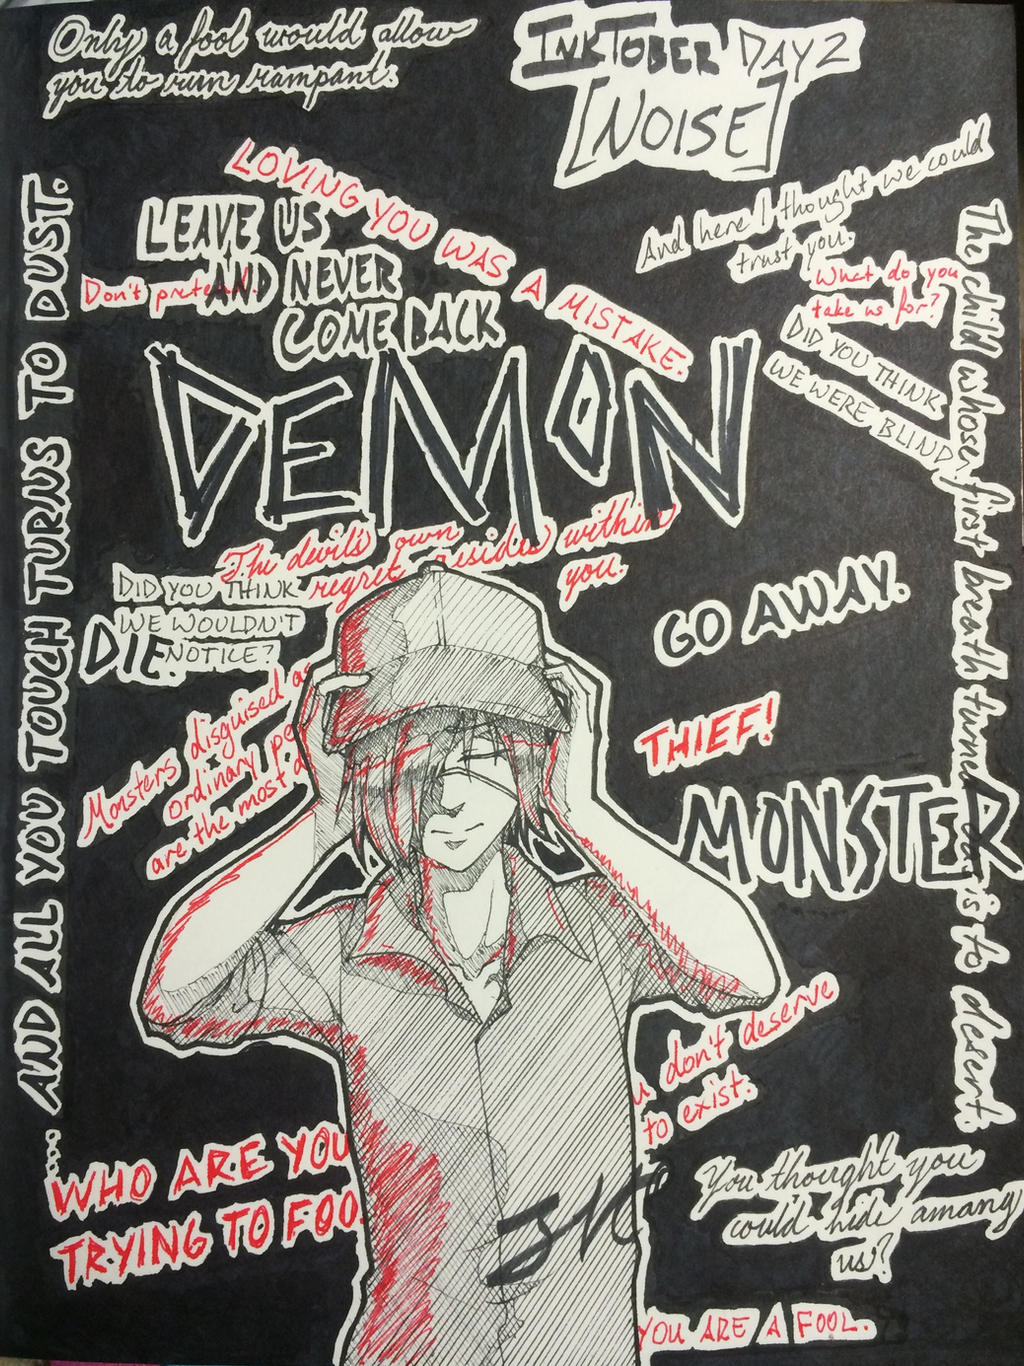 Only a fool would allow
you to run rampant.
INKTOBER DAY 2
[NOISE]
LOVING YOU WAS A MISTAKE.
LEAVE US
AND NEVER
COME BACK
Don't pretend.
And here I thought we could
trust you.
What do you
take us for?
DID YOU THINK
WE WERE BLIND?
DEMON
The devil's own
regret resides within
you.
DID YOU THINK
WE WOULDN'T
NOTICE?
DIE
GO AWAY.
Monsters disguised as
ordinary pe
are the most d
THIEF!
MONSTER
u don't deserve
to exist.
WHO ARE YOU
TRYING TO FOO
You thought you
could hide amang
us?
YOU ARE A FOOL.
The child whose first breath turned is to desert.
.... AND ALL YOU TOUCH TURNS TO DUST.